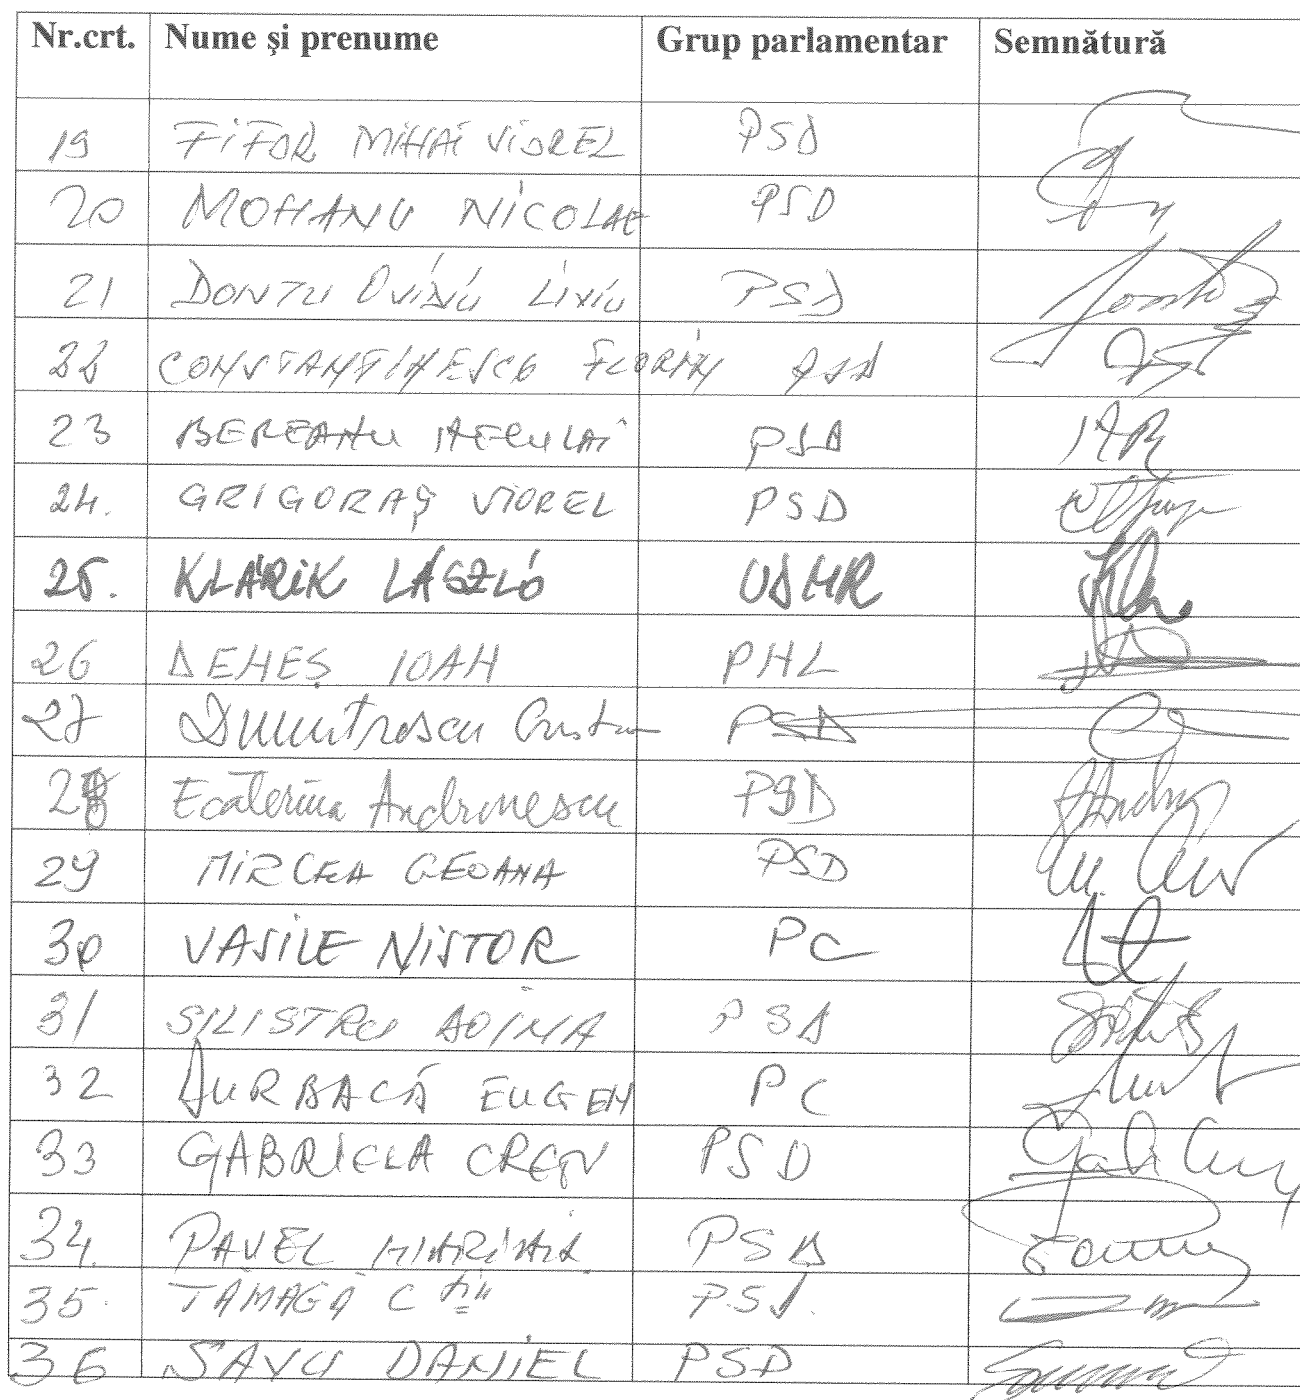 Nr.crt. Nume și prenume Grup parlamentar Semnătură
19 FIFOR MIHAI VIOREL PSD
20 MOHANU NICOLAE PSD
21 DONTU OVIDIU LIVIU PSD
22 CONSTANTINESCU FLORIN PSD
23 BEREANU NECULAI PSD
24. GRIGORAȘ VIOREL PSD
25. KLÁRIK LÁSZLÓ UDMR
26 DENEȘ IOAN PNL
27 Dumitrescu Cristian PSD
28 Ecaterina Andronescu PSD
29 MIRCEA GEOANA PSD
30 VASILE NISTOR PC
31 SILISTRU DOINA PSD
32 DURBACĂ EUGEN PC
33 GABRIELA CREȚU PSD
34. PAVEL MARIAN PSD
35. TĂMAGĂ C tin PSD.
36 SAVU DANIEL PSD